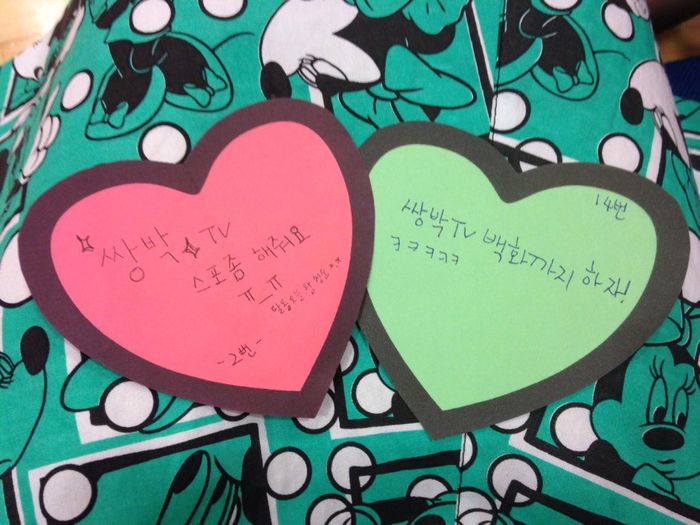 ☆쌍박☆ TV
스포좀 해줘요
ㅠ_ㅠ
-2번-
14번
쌍박TV 백화까지 하자!
ㅋㅋㅋㅋㅋ